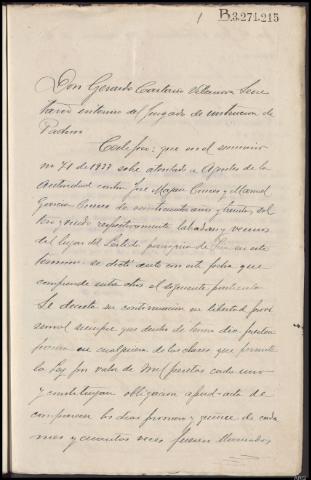 1 B.3.271.215
Don Gerardo Villanueva Secre
tario interino del Juzgado de instrucion de
Padron
Certifico: que en el sumario
nº 71 de 1933 sobre atentado a Agentes de la
Autoridad contra José Cruces y Manuel
Garcia Cruces de y treinta, sol
tero y viudo respectivamente labradores y vecinos
del lugar del parroquia de en este
termino se dictó auto con esta fecha que
comprende entre otros el siguiente particular
Se decreta su continuacion en libertad provi
sional siempre que dentro de tercero dia presten
fianza en cualquiera de las clases que permite
la Ley por valor de mil pesetas cada uno
y constituyan obligacion apud-acta de
comparecer los dias primero y quince de cada
mes y cuantas veces fueren llamados